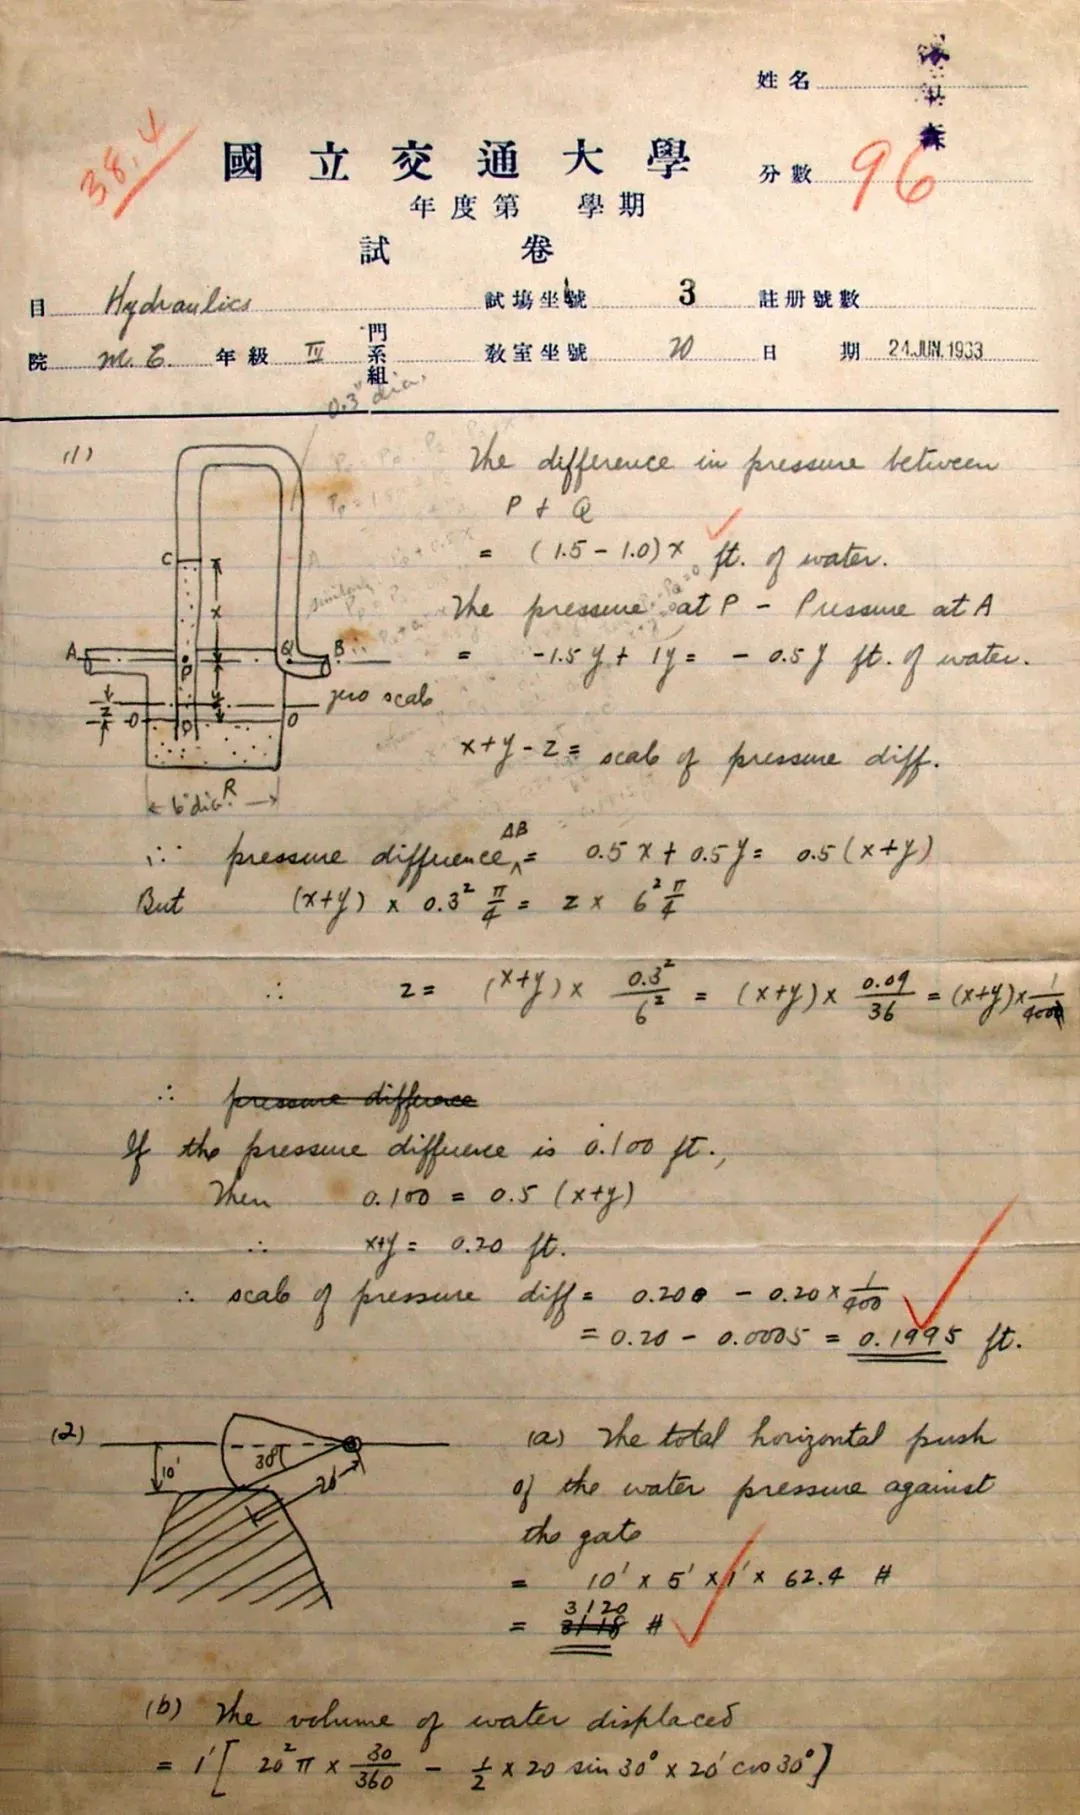 姓名
38.4
國立交通大學
分數 96
年度第 學期
試 卷
目 Hydraulics 試場坐號 3 註册號數
院 M. E. 年級 IV 門系組 教室坐號 20 日 期 24.JUN.1933
0.3" dia.
(1)
The difference in pressure between
P + Q
= (1.5 - 1.0) x ft. of water.
The pressure at P - Pressure at A
= -1.5 y + 1y = - 0.5 y ft. of water.
C
x
A
P
Q
B
y
z
O
O
zero scale
x+y-z = scale of pressure diff.
R
6" dia.
∴ pressure difference AB = 0.5 x + 0.5 y = 0.5 (x+y)
But (x+y) x 0.3² π/4 = z x 6² π/4
∴ z = (x+y) x 0.3²/6² = (x+y) x 0.09/36 = (x+y) x 1/400
∴ pressure difference
If the pressure difference is 0.100 ft.,
Then 0.100 = 0.5 (x+y)
∴ x+y = 0.20 ft.
∴ scale of pressure diff = 0.200 - 0.20 x 1/400
= 0.20 - 0.0005 = 0.1995 ft.
(2)
10'
30°
20'
(a) The total horizontal push
of the water pressure against
the gate
= 10' x 5' x 1' x 62.4 #
3120
= 3118 #
(b) The volume of water displaced
= 1' [ 20² π x 30/360 - 1/2 x 20 sin 30° x 20' cos 30° ]